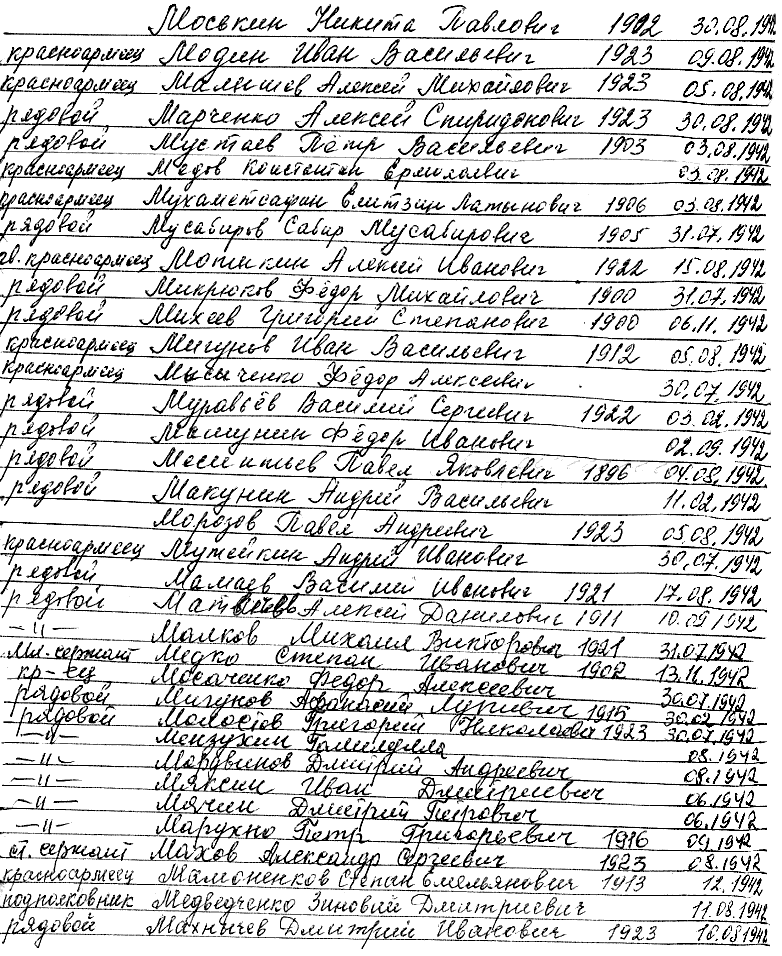 Моськин Никита Павлович 1902 30.08.1942
красноармеец Модин Иван Васильевич 1923 09.08.1942
красноармеец Малышев Алексей Михайлович 1923 05.08.1942
рядовой Марченко Алексей Спиридонович 1923 30.08.1942
рядовой Мустаев Пётр Васильевич 1903 03.08.1942
красноармеец Медов Константин Ермолаевич 03.08.1942
красноармеец Мухаметсафан Латынович 1906 03.08.1942
рядовой Мусабиров Сабир Мусабирович 1905 31.07.1942
гв. красноармеец Мотякин Алексей Иванович 1922 15.08.1942
рядовой Микрюков Фёдор Михайлович 1900 31.07.1942
рядовой Михеев Григорий Степанович 1900 06.11.1942
красноармеец Мигунов Иван Васильевич 1912 05.08.1942
красноармеец Мысыченко Фёдор Алексеевич 30.07.1942
рядовой Муравьёв Василий Сергеевич 1922 03.02.1942
рядовой Фёдор Иванович 02.09.1942
рядовой Павел Яковлевич 1896 04.08.1942
рядовой Макунин Андрей Васильевич 11.02.1942
Морозов Павел Андреевич 1923 05.08.1942
красноармеец Мутейкин Андрей Иванович 30.07.1942
рядовой Мамаев Василий Иванович 1921 17.08.1942
рядовой Матвеев Алексей Данилович 1911 10.09.1942
–"– Малков Михаил Викторович 1921 31.07.1942
мл. сержант Медко Степан Иванович 1902 13.11.1942
кр-ец Мосаченко Федор Алексеевич 30.07.1942
рядовой Мигунов Афанасий Лупиевич 1915 30.02.1942
рядовой Молостов Григорий Николаевич 1923 30.07.1942
–"– Мензухин 08.1942
–"– Мордвинов Дмитрий Андреевич 08.1942
–"– Мяксин Иван Дмитриевич 06.1942
–"– Мячин Дмитрий Петрович 06.1942
–"– Марухно Петр Григорьевич 1916 09.1942
ст. сержант Махов Александр Сергеевич 1923 08.1942
красноармеец Мамоненков Степан Емельянович 1913 12.1942
подполковник Медведченко Зиновий Дмитриевич 11.08.1942
рядовой Махничев Дмитрий Иванович 1923 16.08.1942